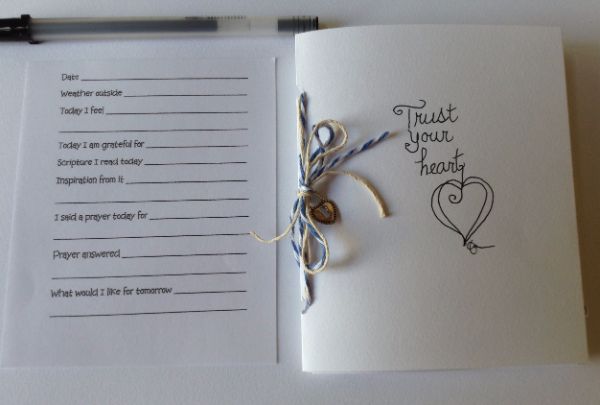 Date
Weather outside
Today I feel
Today I am grateful for
Scripture I read today
Inspiration from it
I said a prayer today for
Prayer answered
What would I like for tomorrow
Trust
your
heart